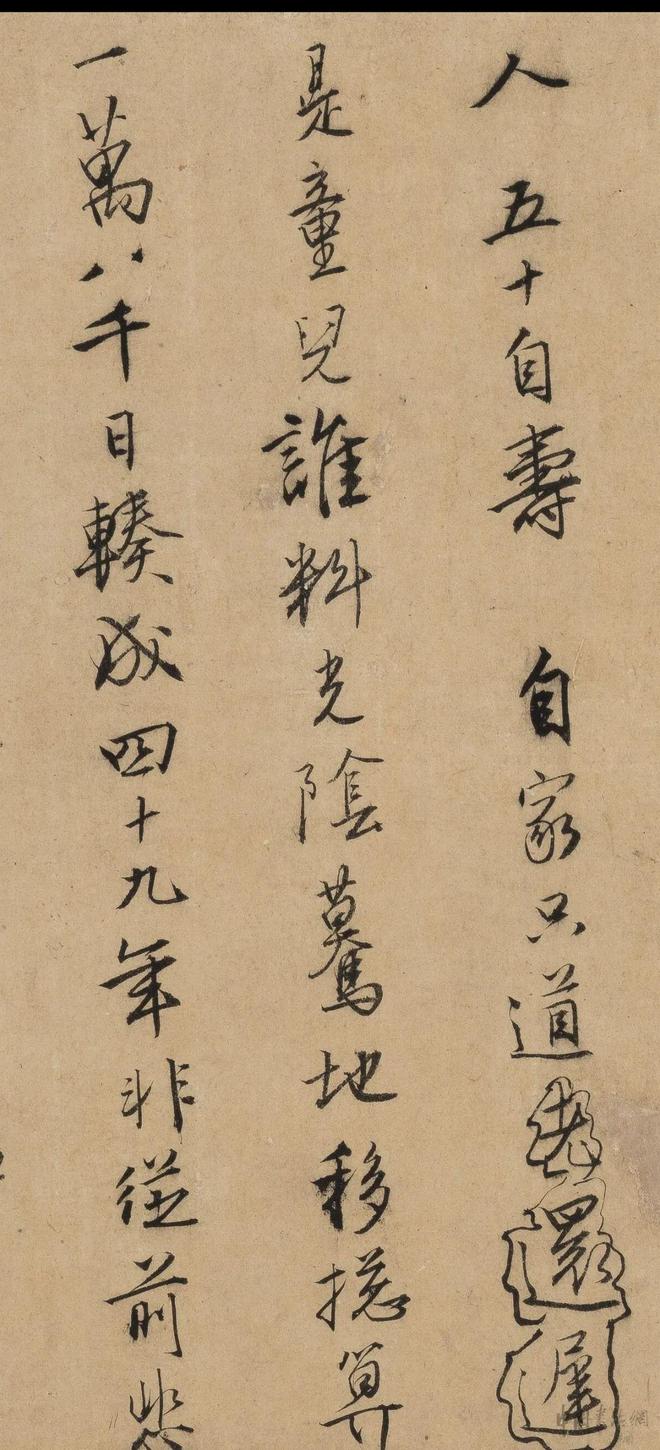 人 五十自壽 自家只道老還遲
是童兒誰料光陰驀地移揔算
一萬八千日輳成四十九年非從前悲